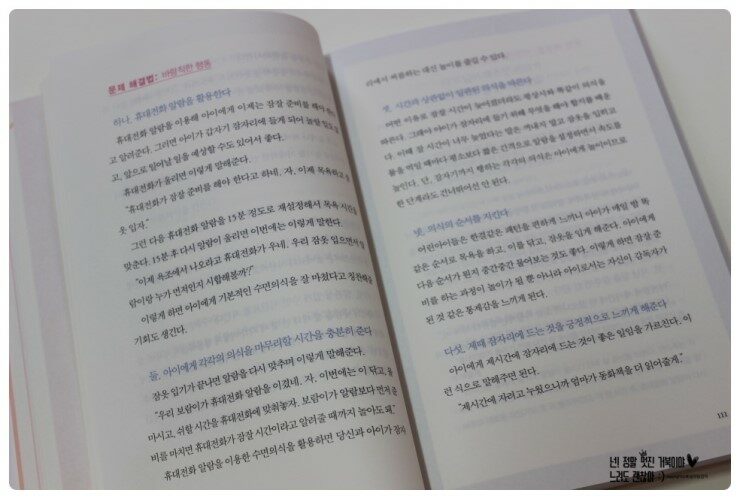 문제 해결법: 바람직한 행동
하나, 휴대전화 알람을 활용한다
휴대전화 알람을 이용해 아이에게 이제는 잠잘 준비를 해야
고 알려준다. 그러면 아이가 갑자기 잠자리에 들게 되어 놀랄 일도
고, 앞으로 일어날 일을 예상할 수도 있어서 좋다.
휴대전화가 울리면 이렇게 말해준다.
"휴대전화가 잠잘 준비를 해야 한다고 하네. 자, 이제 목욕하고
옷 입자."
그런 다음 휴대전화 알람을 15분 정도로 재설정해서 목욕 시간을
맞춘다. 15분 후 다시 알람이 울리면 이번에는 이렇게 말한다.
"이제 욕조에서 나오라고 휴대전화가 우네. 우리 잠옷 입으면서
람이랑 누가 먼저인지 시합해볼까?"
이렇게 하면 아이에게 기본적인 수면의식을 잘 마쳤다고 칭찬해줄
기회도 생긴다.
둘, 아이에게 각각의 의식을 마무리할 시간을 충분히 준다
잠옷 입기가 끝나면 알람을 다시 맞추며 이렇게 말해준다.
"우리 보람이가 휴대전화 알람을 이겼네. 자, 이번에는 이 닦고, 물
마시고, 쉬할 시간을 휴대전화에 맞춰놓자. 보람이가 알람보다 먼저 준
비를 마치면 휴대전화가 잠잘 시간이라고 알려줄 때까지 놀아도 돼."
휴대전화 알람을 이용한 수면의식을 활용하면 당신과 아이가 잠자
리에서 씨름하는 대신 놀이를 즐길 수 있다.
셋, 시간과 상관없이 일관된 의식을 따른다
어떤 이유로 잠잘 시간이 늦어졌더라도 평상시와 똑같이 의식을
따른다. 그래야 아이가 잠자리에 들기 위해 무엇을 해야 할지를 배운
다. 이때 잘 시간이 너무 늦었다는 말은 꺼내지 말고 잠옷을 입히고
물을 먹일 때마다 평소보다 짧은 간격으로 알람을 설정하면서 속도를
높인다. 단, 잠자기까지 행하는 각각의 의식은 아이에게 놀이이므로
한 단계라도 건너뛰어선 안 된다.
넷, 의식의 순서를 지킨다
어린아이들은 한결같은 패턴을 편하게 느끼니 아이가 매일 밤 똑
같은 순서로 목욕을 하고, 이를 닦고, 잠옷을 입게 해준다. 아이에게
다음 순서가 뭔지 중간중간 물어보는 것도 좋다. 이렇게 하면 잠잘 준
비를 하는 과정이 놀이가 될 뿐 아니라 아이로서는 자신이 감독자가
된 것 같은 통제감을 느끼게 된다.
다섯, 제때 잠자리에 드는 것을 긍정적으로 느끼게 해준다
아이에게 제시간에 잠자리에 드는 것이 좋은 일임을 가르친다. 이
런 식으로 말해주면 된다.
"제시간에 자려고 누웠으니까 엄마가 동화책을 더 읽어줄게."
111
넌 정말 멋진 거북이야
느려도 괜찮아 :)